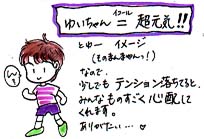 ゆいちゃん = 超元気!!
イコール
とゆー イメージ
(そのまんまやんっ!)
なので、
少しでも テンション落ちてると、
みんなものすごく心配して
くれます。
ありがたい…
W